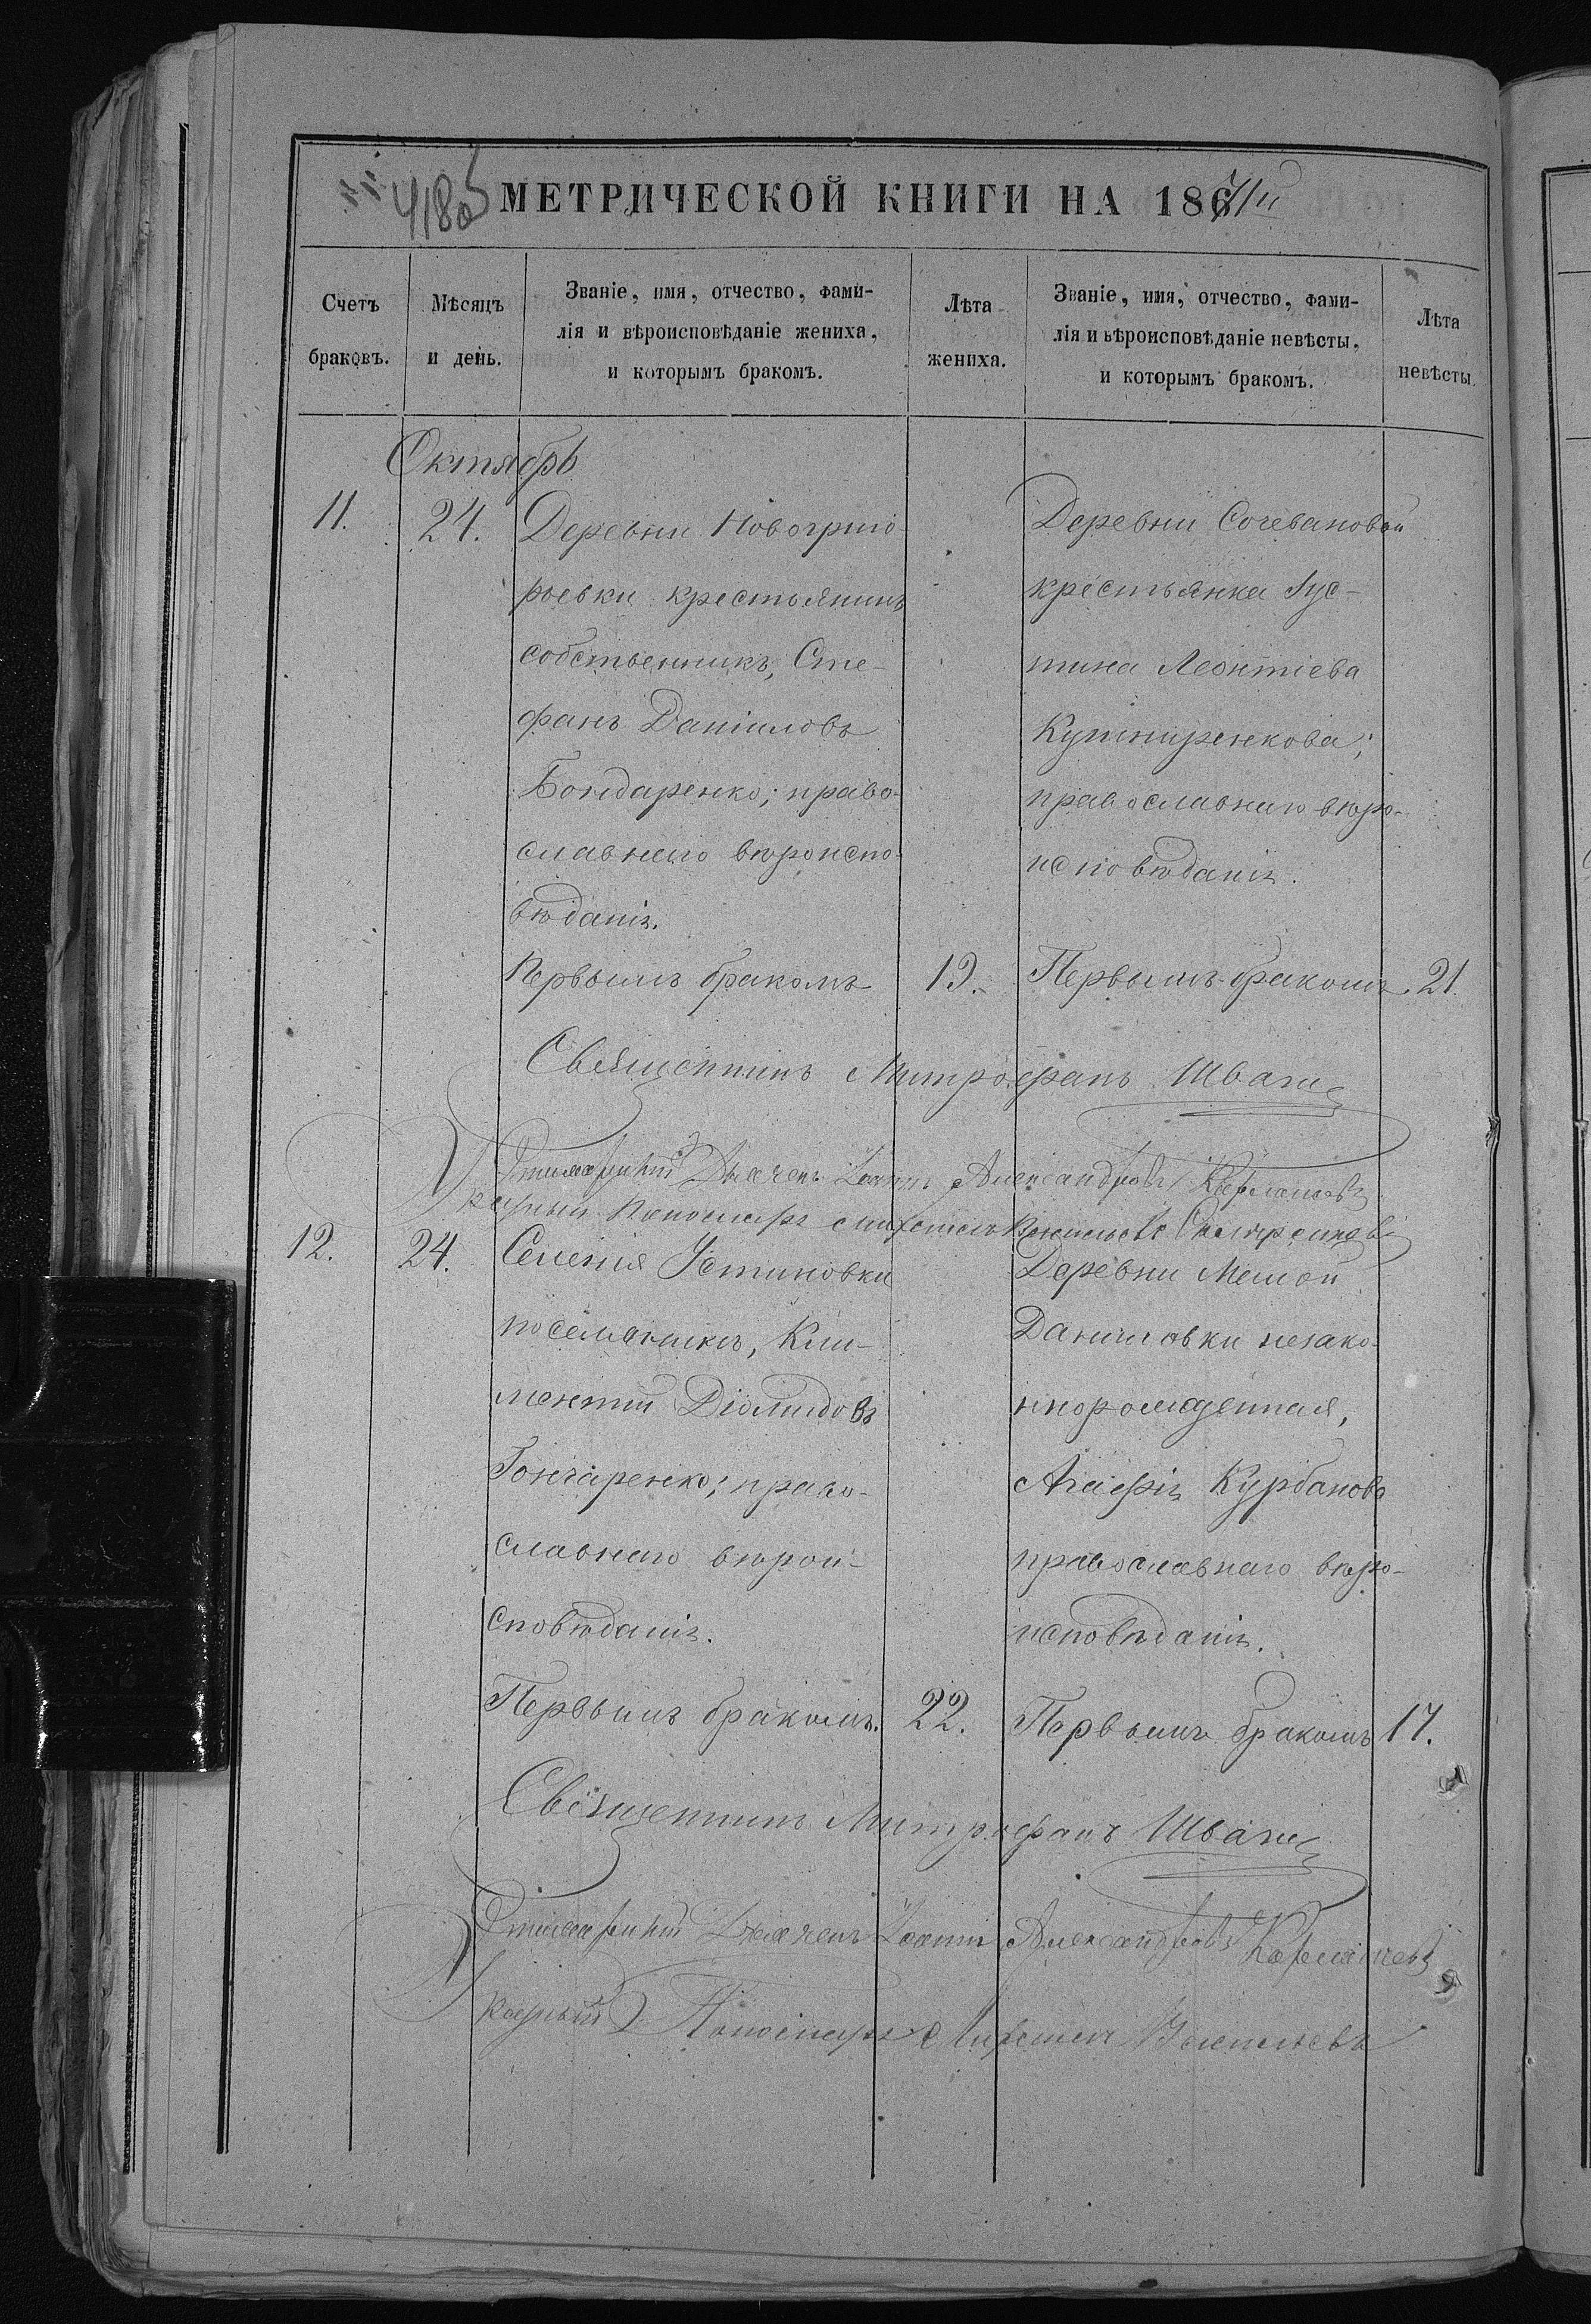 418об
МЕТРИЧЕСКОЙ КНИГИ НА 1871й
Счетъ браковъ.
Мѣсяцъ и день.
Званіе, имя, отчество, фами-
лія и вѣроисповѣданіе жениха,
и которымъ бракомъ.
Лѣта жениха.
Званіе, имя, отчество, фами-
лія и вѣроисповѣданіе невѣсты,
и которымъ бракомъ.
Лѣта невѣсты.
Октябрь
11.
24.
Деревни Новогриго-
рьевки крестьянинъ
собственникъ, Сте-
фанъ Даніиловъ
Бондаренко; право-
славнаго вѣроиспо-
вѣданія.
Первымъ бракомъ
19.
Деревни Сочевановой
крестьянка Іус-
тина Леонтіева
Кушниренкова;
православнаго вѣро-
исповѣданія.
Первымъ бракомъ
21.
Священникъ Митрофанъ Швачъ
Дьячекъ Іоаннъ Александровъ
Пономарь
12.
24.
Селенія Устиновки
поселянинъ, Кли-
ментій Діомидовъ
Гончаренко; право-
славнаго вѣрои-
сповѣданія.
Первымъ бракомъ.
22.
Деревни Малой
Даниловки незако-
ннорожденная,
Агафія Курбанова
православнаго вѣро-
исповѣданія.
Первымъ бракомъ
17.
Священникъ Митрофанъ Швачъ
Дьячекъ Іоаннъ Александровъ
Пономарь Васильевъ